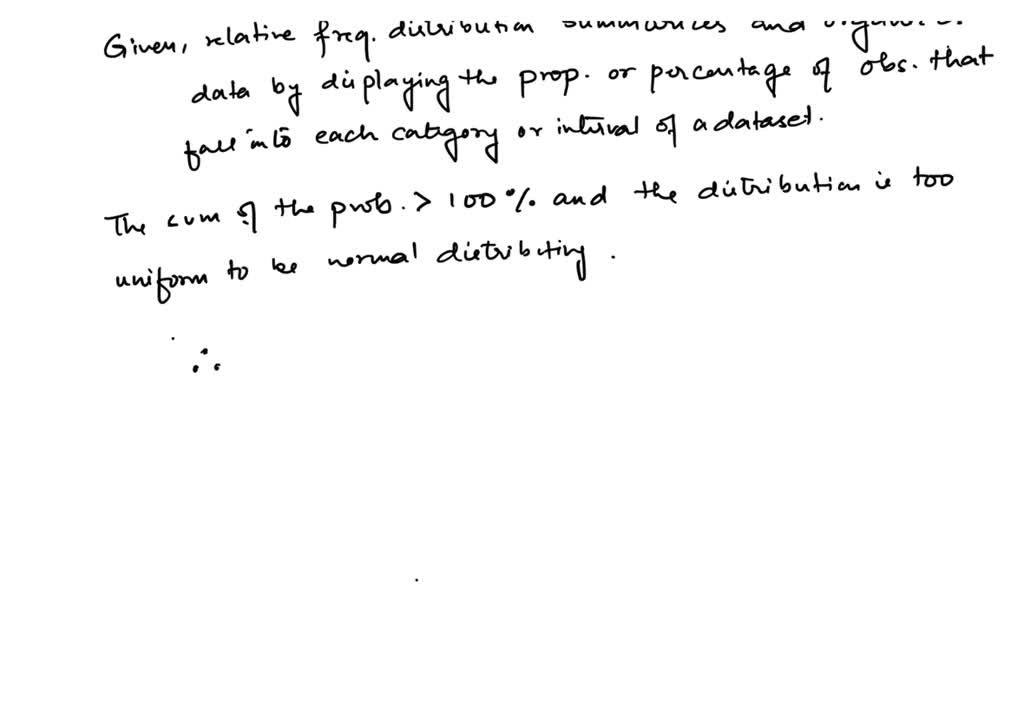 Given, relative freq. distribution summarizes and
data by displaying the prop. or percentage of obs. that
fall into each category or interval of a dataset.
The sum of the prob. > 100% and the distribution is too
uniform to be normal distributing.
∴